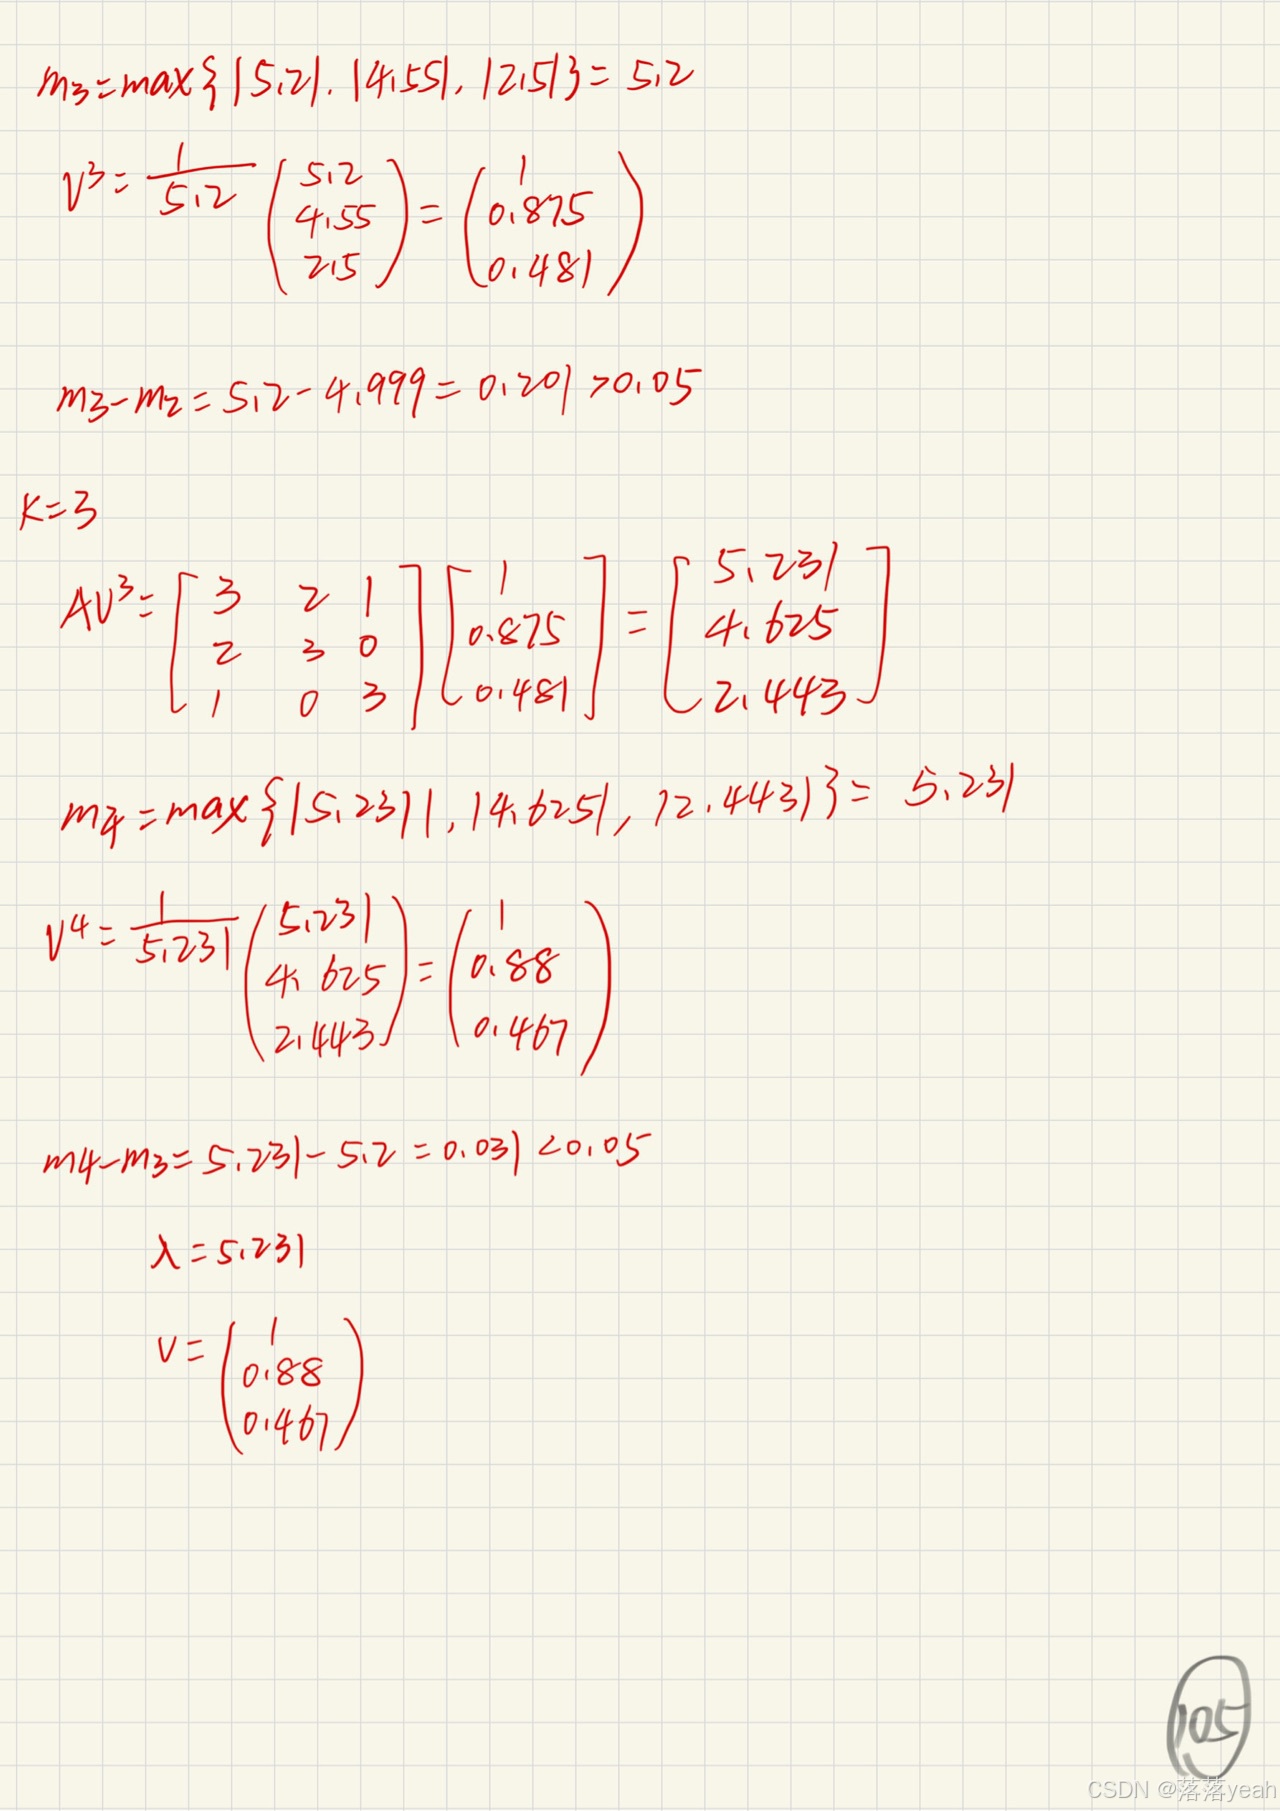 m₃=max{|5.2|. |4.55|, |2.5|}=5.2
V³= 1/5.2 (5.2 4.55 2.5) = (1 0.875 0.481)
m₃-m₂=5.2-4.999=0.201>0.05
K=3
AV³= [3 2 1; 2 3 0; 1 0 3] [1 0.875 0.481] = [5.231 4.625 2.443]
m₄=max{|5.231|, |4.625|, |2.443|}= 5.231
V⁴= 1/5.231 (5.231 4.625 2.443) = (1 0.88 0.467)
m4-m₃=5.231-5.2=0.031<0.05
λ=5.231
V= (1 0.88 0.467)
105
CSDN @落落yeah